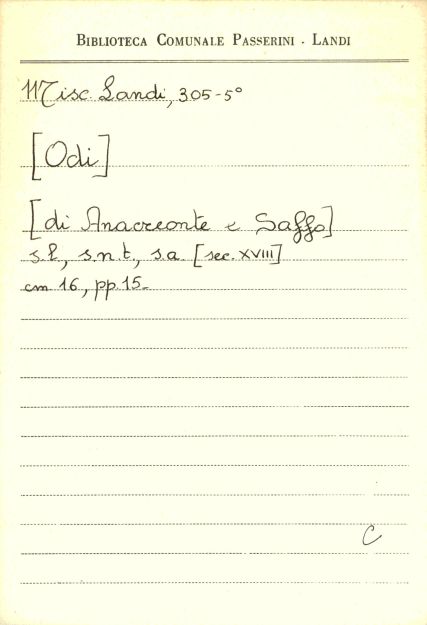 BIBLIOTECA COMUNALE PASSERINI - LANDI
Misc. Landi, 305-5°
[Odi]
[di Anacreonte e Saffo]
s.l., s.n.t., s.a. [sec. XVIII]
cm 16, pp. 15-
C